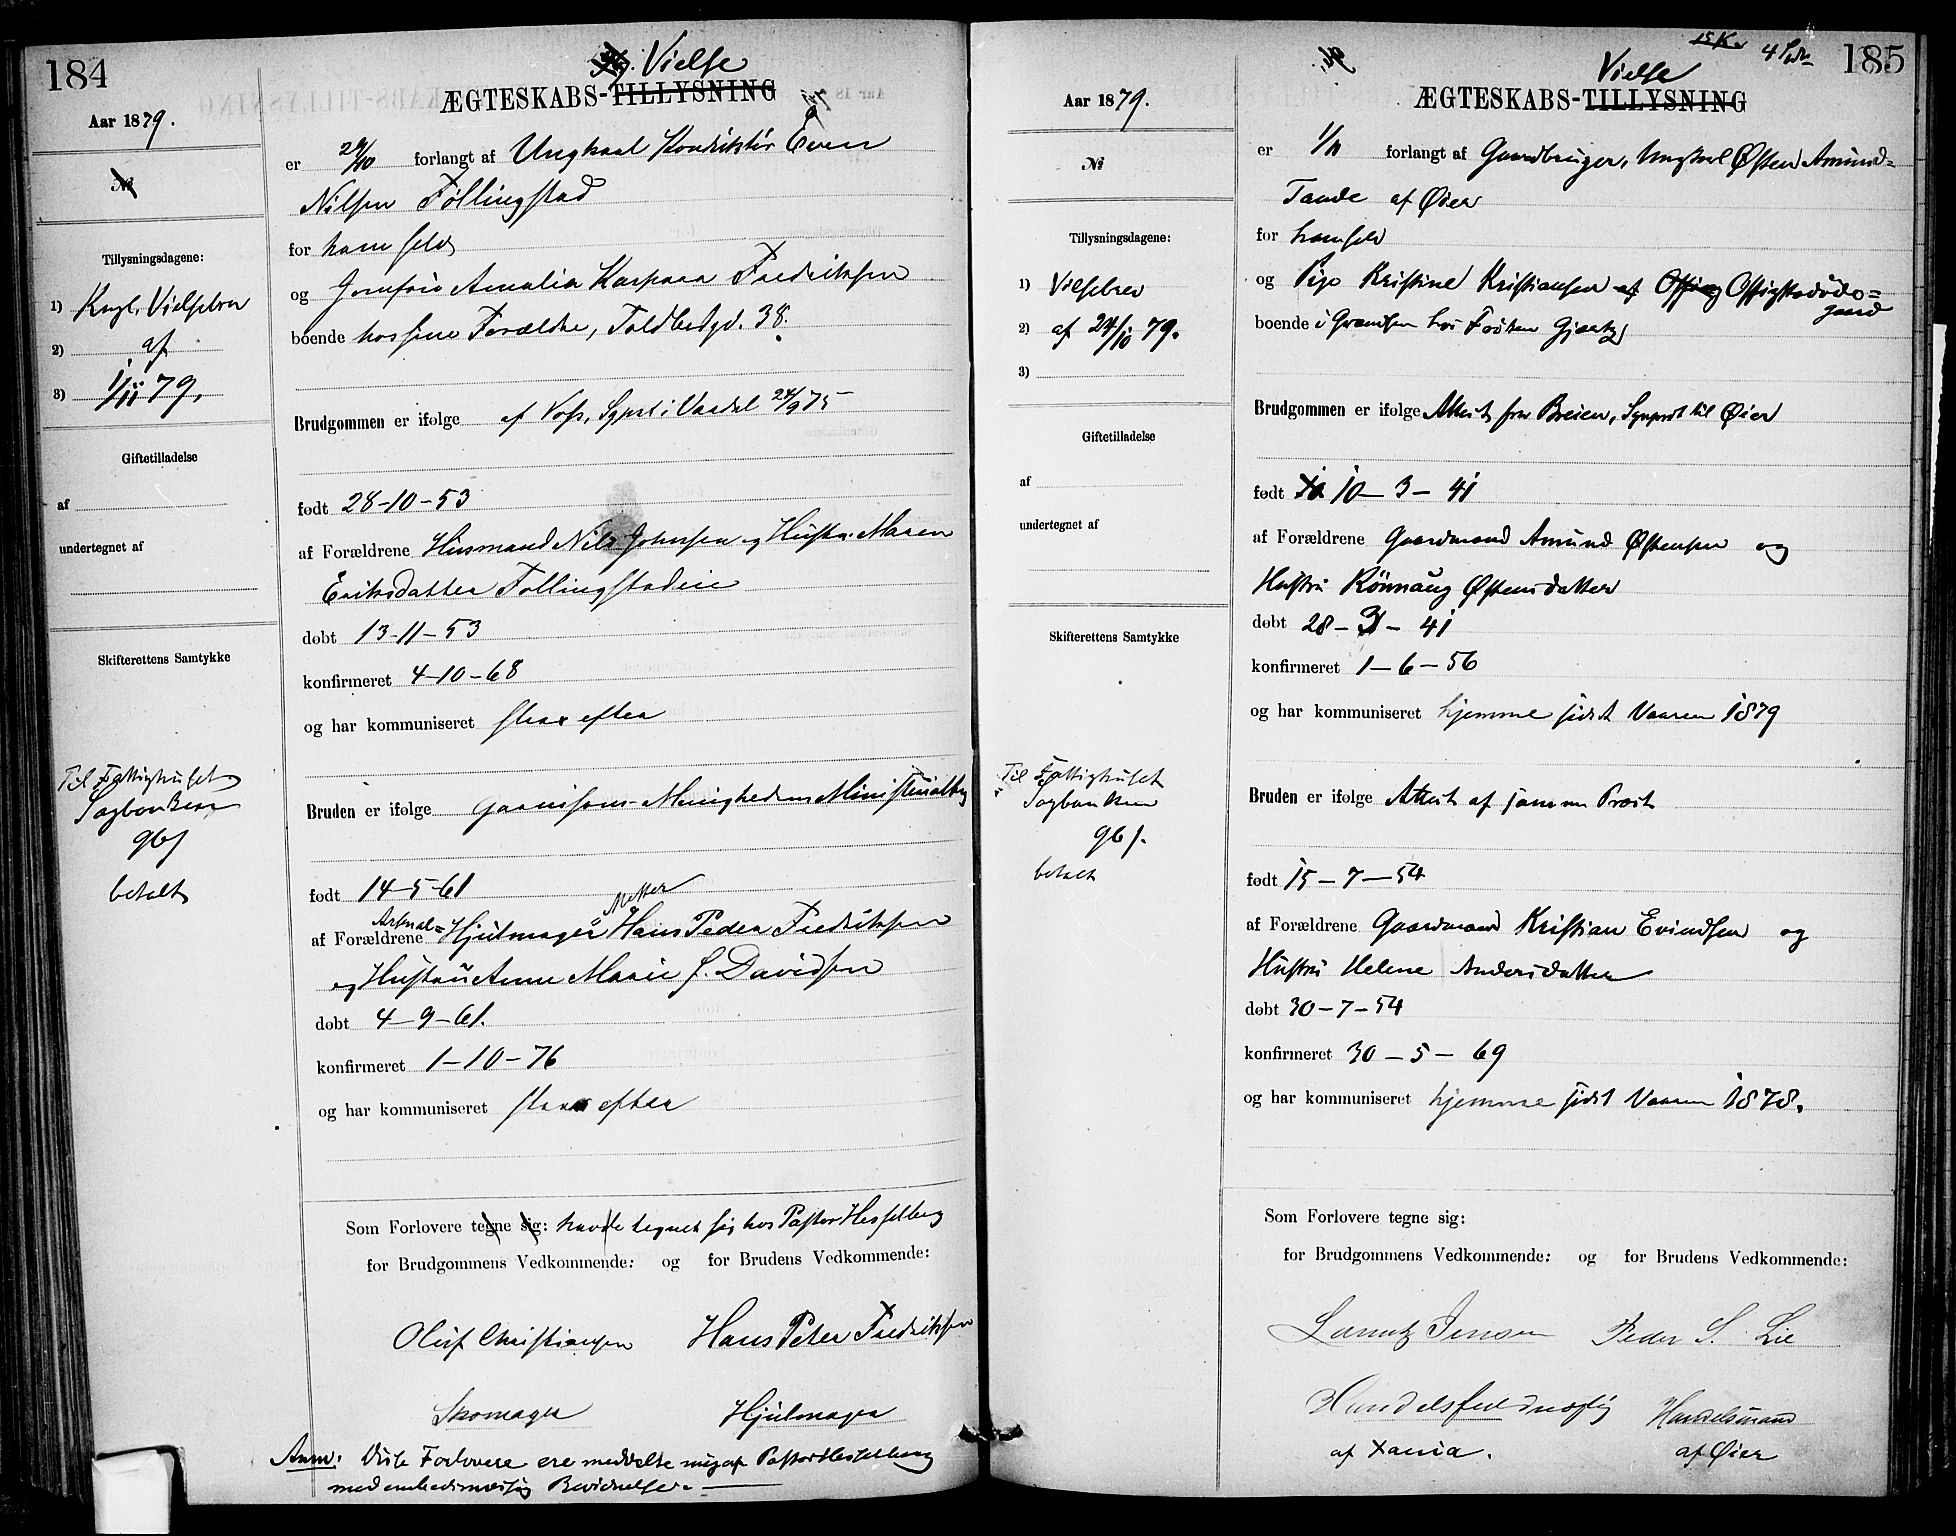 184
Vielse
ÆGTESKABS-TILLYSNING
Aar 1879.
№
er 29/10 forlangt af Ungkarl Konduktör Even
Nilsen Föllingstad
Tillysningsdagene:
for ham selv
1) Kngl. Vielsebrev
og Jomfru Amalia Kaspara Fredriksen
2) af
boende hos sine Forældre, Toldbodgd. 38.
3) 1/11 79.
Brudgommen er ifølge af Vofs, Sgprst i Vardal 24/9 75
Giftetilladelse
af
født 28-10-53
undertegnet af
af Forældrene Husmand Nils Johnsen og Hustru Maren
Eriksdatter Föllingstadeie
døbt 13-11-53
Skifterettens Samtykke
konfirmeret 4-10-68
og har kommuniseret strax efter
Til Fattighuset
Sagbanken
96 /
betalt
Bruden er ifølge Garnisons-Menighedens Ministerialbog
født 14-5-61
Arsenal=
af Forældrene Hjulmager Hans Peder Fredriksen
og Hustru Anne Marie S. Davidsen
døbt 4-9-61.
konfirmeret 1-10-76
og har kommuniseret strax efter
Som Forlovere tegne sig: havde tegnet sig hos Pastor Hesselberg
for Brudgommens Vedkommende: og for Brudens Vedkommende:
Oluf Christiansen Hans Peter Fredriksen
Skomager Hjulmager
Anm: Disse Forlovere ere meddelte mig af Pastor Hesselberg
med embedsmæssig Bevidnelse.
15 Kr 185
Vielse
ÆGTESKABS-TILLYSNING
Aar 1879.
№
er 1/11 forlangt af Gaardbruger, Ungkarl Østen Amund=
Tande af Øier
Tillysningsdagene:
for ham selv
1) Vielsebrev
og Pige Kristine Kristiansen
2) af 24/10 79.
boende i Grændsen hos Frøken
3)
Brudgommen er ifølge Attest fra Breien, Sgnprst til Øier
Giftetilladelse
af
født 10-3-41
undertegnet af
af Forældrene Gaardmand Amund Østensen og
Hustru Rönnaug Østensdatter
døbt 28-3-41
Skifterettens Samtykke
konfirmeret 1-6-56
og har kommuniseret hjemme sidst Vaaren 1879
Til Fattighuset
Sagbanken
96 /.
betalt
Bruden er ifølge Attest af samme Præst
født 15-7-54
af Forældrene Gaardmand Kristian Evindsen og
Hustru Helene Andersdatter
døbt 30-7-54
konfirmeret 30-5-69
og har kommuniseret hjemme sidst Vaaren 1878.
Som Forlovere tegne sig:
for Brudgommens Vedkommende: og for Brudens Vedkommende:
Lauritz Jensen Peder S. Lie
Handelsfuldmægtig Handelsmand
af Øier